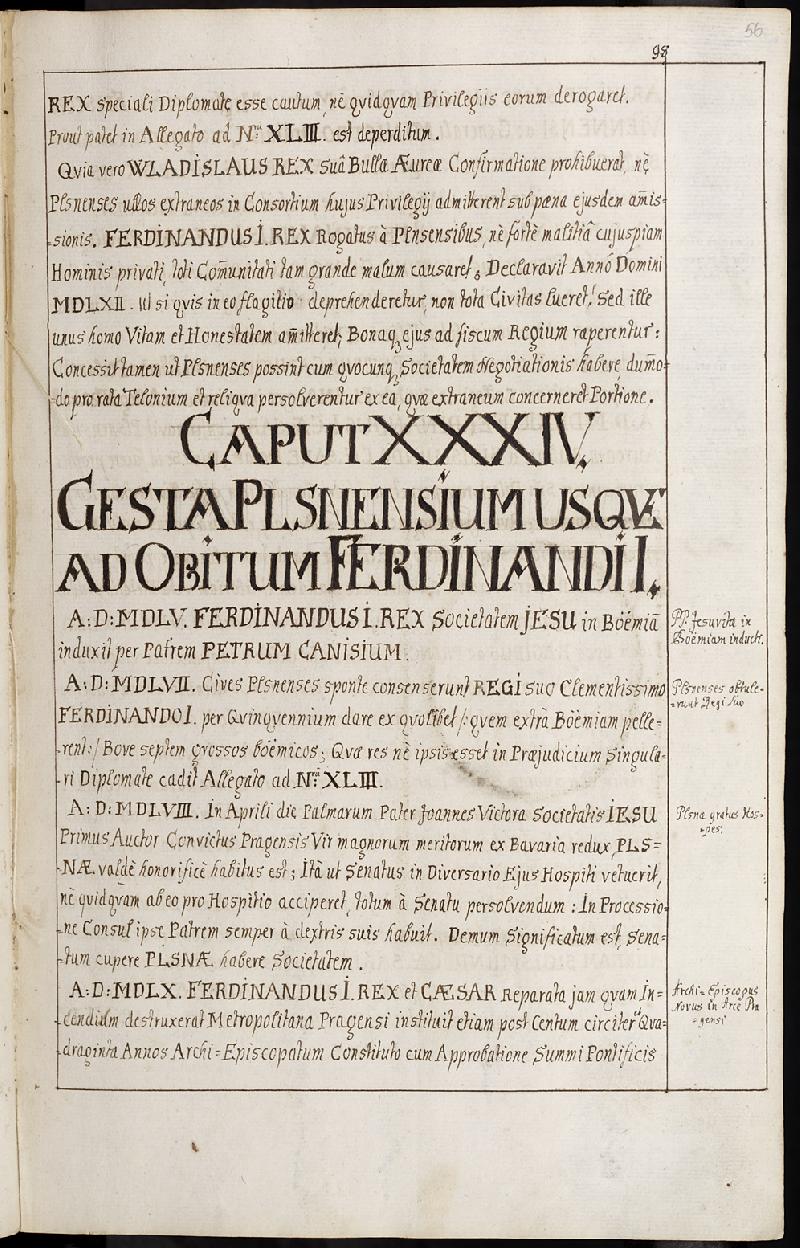 56
98
REX speciali Diplomate esse cautum, nè quidquam Privilegiis eorum derogaret.
Prout patet in Allegato ad Nrm XLIII. est deperditum.
Quia vero WLADISLAUS REX suâ Bullæ Æureæ Confirmatione prohibuerat, nè
Plsnenses ullos extraneos in Consortium hujus Privilegij admitterent sub pæna ejusdem am̄is=
=sionis. FERDINANDUS I. REX Rogatus à Plnsensibus, nè fortè malitiâ cujuspiam
Hominis privati, toti Com̄unitati tam grande malum causaret; Declaravit Annō Domini
MDLXII. ut si quis in eo flagitio deprehenderetur, non tota Civitas lueret! Sed ille
unus homo Vitam et Honestatem am̄itteret; Bonaq, ejus ad fiscum Regium raperentur:
Concessit tamen ut Plsnenses possint cum quocunq, Societatem Negotiationis habere, dum̄o=
=do pro rata Telonium et reliqva persolverentur ex ea, quæ extraneum concerneret Portione.
CAPUT XXXIV.
GESTA PLSNENSIUM USQUE
AD OBITUM FERDINANDI I.
A: D: MDLV. FERDINANDUS I. REX Societatem JESU in Böëmiā
induxit per Patrem PETRUM CANISIUM
PP. Jesuitæ in
Böëmiam inducti.
A: D: MDLVII. Cives Plsnenses sponte consenserunt REGI suo Clementissimo
FERDINANDO I. per Qvinqvennium dare ex qvolibet /: qvem extrà Böëmiam pelle=
=rent :/ Bove septem grossos böëmicos; Qvæ res nè ipsis esset in Præjudicium Singula=
=ri Diplomate cadit Allegato ad Nrū XLIII.
Plsnenses obtule=
=runt Regi suo
A: D: MDLVIII. In Aprili die Palmarum Pater Joannes Victora Societatis IESU
Primus Auctor Convictus Pragensis Vir magnorum meritorum ex Bavaria redux, PLS=
=NÆ valdè honorificè habitus est; Ità ut Senatus in Diversario Ejus Hospiti vetuerit,
nè quidqvam ab eo pro Hospitio acciperet, totum à Senatu persolvendum: In Processio=
=ne Consul ipse Patrem semper à dextris suis habuit. Demum Significatum est, Sena=
=tum cupere PLSNÆ habere Societatem.
Plsna gratus Hos=
=pes.
A: D: MDLX. FERDINANDUS I. REX et CÆSAR Reparata jam qvam In=
=cendium destruxerat Metropolitana Pragensi instituit etiam post Centum circiter Qva=
=draginta Annos Archi=Episcopatum Constituto cum Approbatione Summi Pontificis
Archi=Episcopus
Novus in Arce Pra
=gensi